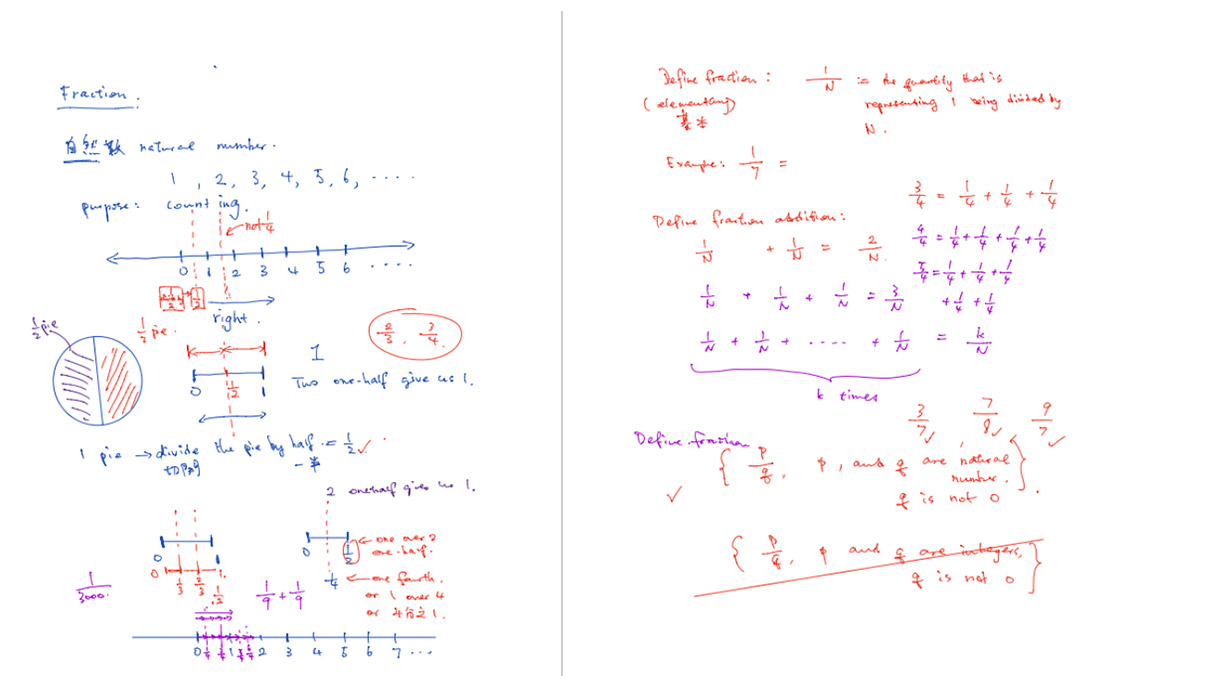 Fraction.
自然數 natural number.
1, 2, 3, 4, 5, 6, ....
purpose: counting.
not 1/4
0 1 2 3 4 5 6 ....
1/2
right.
1/2 pie
1/2 pie.
2/3, 3/4
1
0 1/2 1
Two one-half give us 1.
1 pie → divide the pie by half. = 1/2 ✓
一半
2 onehalf gives us 1.
0 1
0 1/3 2/3 1.
1/2
0 1/2 ← one over 2
one-half.
1/4 ← one fourth.
or 1 over 4
or 4分之1.
1/3000.
1/9 + 1/9
0 1 2 3 4 5 6 7 ...
Define fraction: 1/N := the quantity that is
(elementary) representing 1 being divided by
基本 N.
Example: 1/7 =
3/4 = 1/4 + 1/4 + 1/4
Define fraction addition:
1/N + 1/N = 2/N.
4/4 = 1/4 + 1/4 + 1/4 + 1/4
5/4 = 1/4 + 1/4 + 1/4
+ 1/4 + 1/4
1/N + 1/N + 1/N = 3/N
1/N + 1/N + .... + 1/N = k/N
k times
3/7 ✓, 7/8 ✓ 9/7 ✓
Define fraction
{ p/q, p, and q are natural
number.
q is not 0 }.
✓
{ p/q, p and q are integers,
q is not 0 }